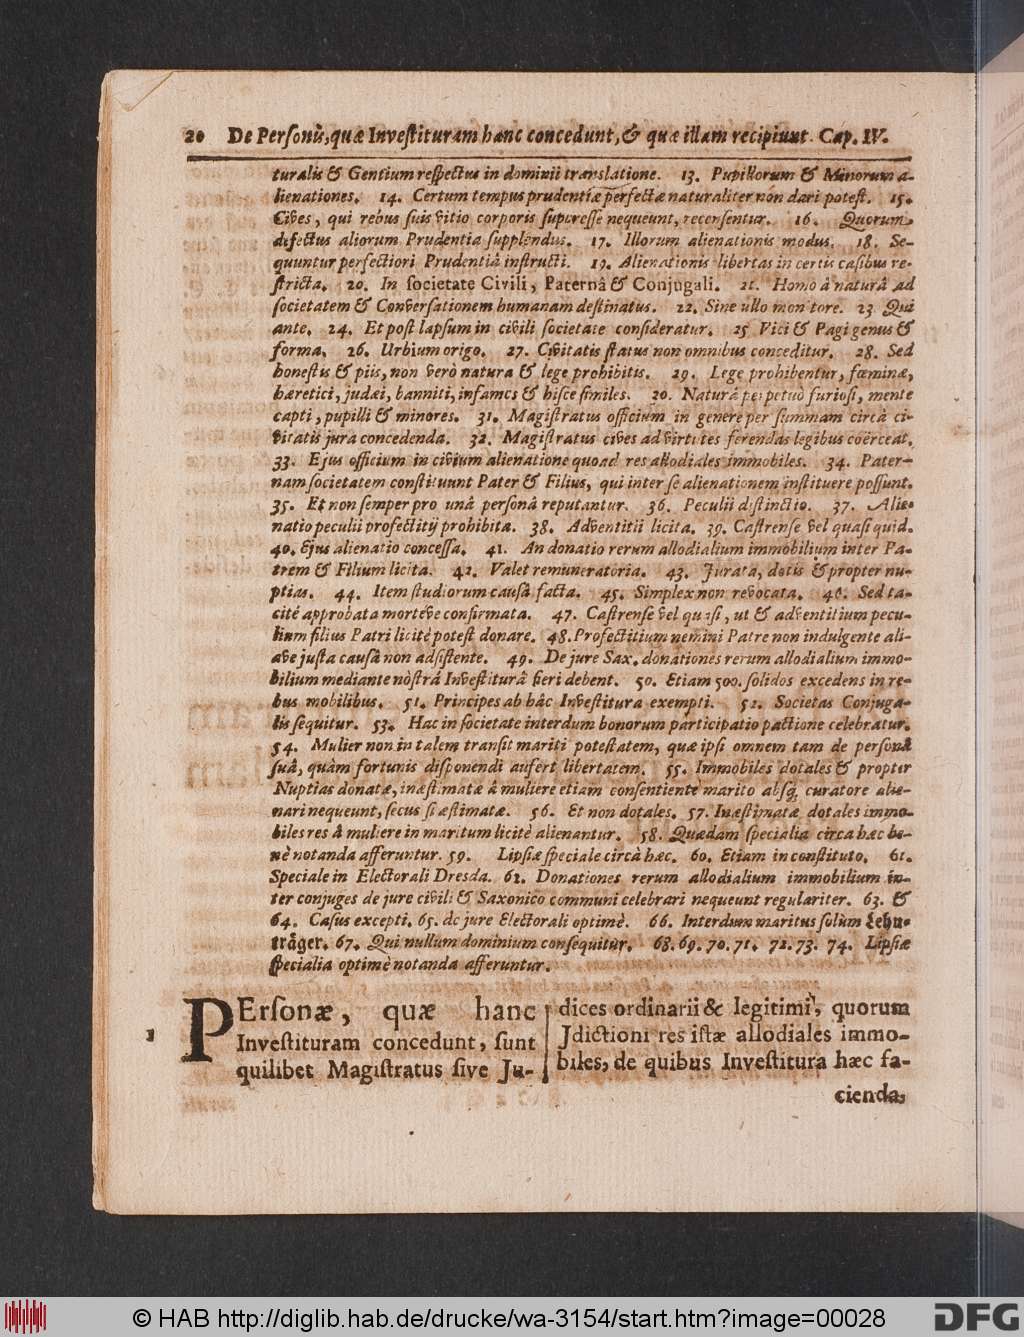 20 De Personis, quæ Investituram hanc concedunt, & quæ illam recipiunt. Cap. IV.
turalis & Gentium respectus in dominii translatione. 13. Pupillorum & Minorum a-
lienationes. 14. Certum tempus prudentiæ perfectæ naturaliter nón dari potest. 15.
Cives, qui rebus suis vitio corporis superesse nequeunt, recensentur. 16. Quorum
defectus aliorum Prudentia supplendus. 17. Illorum alienationis modus. 18. Se-
quuntur perfectiori Prudentiâ instructi. 19. Alienationis libertas in certis casibus re-
stricta. 20. In societate Civili, Paternâ & Conjugali. 21. Homo â naturâ ad
societatem & Conversationem humanam destinatus. 22. Sine ullo monitore. 23 Qui
ante. 24. Et post lapsum in civili societate consideratur. 25 Vici & Pagi genus &
forma. 26. Urbium origo. 27. Civitatis status non omnibus conceditur. 28. Sed
honestis & piis, non verò natura & lege prohibitis. 29. Lege prohibentur, fœminæ,
hæretici, judæi, banniti, infames & hisce similes. 20. Naturâ perpetuò furiosi, mente
capti, pupilli & minores. 31. Magistratus officium in genere per summam circà ci-
vitatis jura concedenda. 32. Magistratus cives ad virtutes ferendas legibus coërceat.
33. Ejus officium in civium alienatione quoad res allodiales immobiles. 34. Pater-
nam societatem constituunt Pater & Filius, qui inter se alienationem instituere possunt.
35. Et non semper pro unâ personâ reputantur. 36. Peculii distinctio. 37. Alie-
natio peculii profectitij prohibita. 38. Adventitii licita. 39. Castrense vel quasi quid.
40. Ejus alienatio concessa. 41. An donatio rerum allodialium immobilium inter Pa-
trem & Filium licita. 42. Valet remuneratoria. 43. Jurata, dotis & propter nu-
ptias. 44. Item studiorum causâ facta. 45. Simplex non revocata. 46. Sed ta-
cité approbata morteve confirmata. 47. Castrense vel quasi, ut & adventitium pecu-
lium filius Patri licitè potest donare. 48. Profectitium nemini Patre non indulgente ali-
ave justa causâ non adsistente. 49. De jure Sax. donationes rerum allodialium immo-
bilium mediante nòstrâ Investiturâ fieri debent. 50. Etiam 500. solidos excedens in re-
bus mobilibus. 51. Principes ab hâc Investitura exempti. 52. Societas Conjuga-
lis sequitur. 53. Hac in societate interdum bonorum participatio pactione celebratur.
54. Mulier non in talem transit mariti potestatem, quæ ipsi omnem tam de personâ
suâ, quàm fortunis disponendi aufert libertatem. 55. Immobiles dotales & propter
Nuptias donatæ, inæstimatæ â muliere etiam consentiente marito absq; curatore alie-
nari nequeunt, secus si æstimatæ. 56. Et non dotales. 57. Inæstimatæ dotales immo-
biles res â muliere in maritum licitè alienantur. 58. Quædam specialia circa hæc be-
nè notanda afferuntur. 59. Lipsiæ speciale circà hæc. 60. Etiam in constituto. 61.
Speciale in Electorali Dresda. 62. Donationes rerum allodialium immobilium in-
ter conjuges de jure civili & Saxonico communi celebrari nequeunt regulariter. 63. &
64. Casus excepti. 65. de jure Electorali optimè. 66. Interdum maritus solùm Lehn-
träger. 67. Qui nullum dominium consequitur. 68. 69. 70. 71. 72. 73. 74. Lipsiæ
specialia optimè notanda afferuntur.
1 PErsonæ, quæ hanc
Investituram concedunt, sunt
quilibet Magistratus sive Ju-
dices ordinarii & legitimi, quorum
Jdictioni res istæ allodiales immo-
biles, de quibus Investitura hæc fa-
cienda,
© HAB http://diglib.hab.de/drucke/wa-3154/start.htm?image=00028
DFG